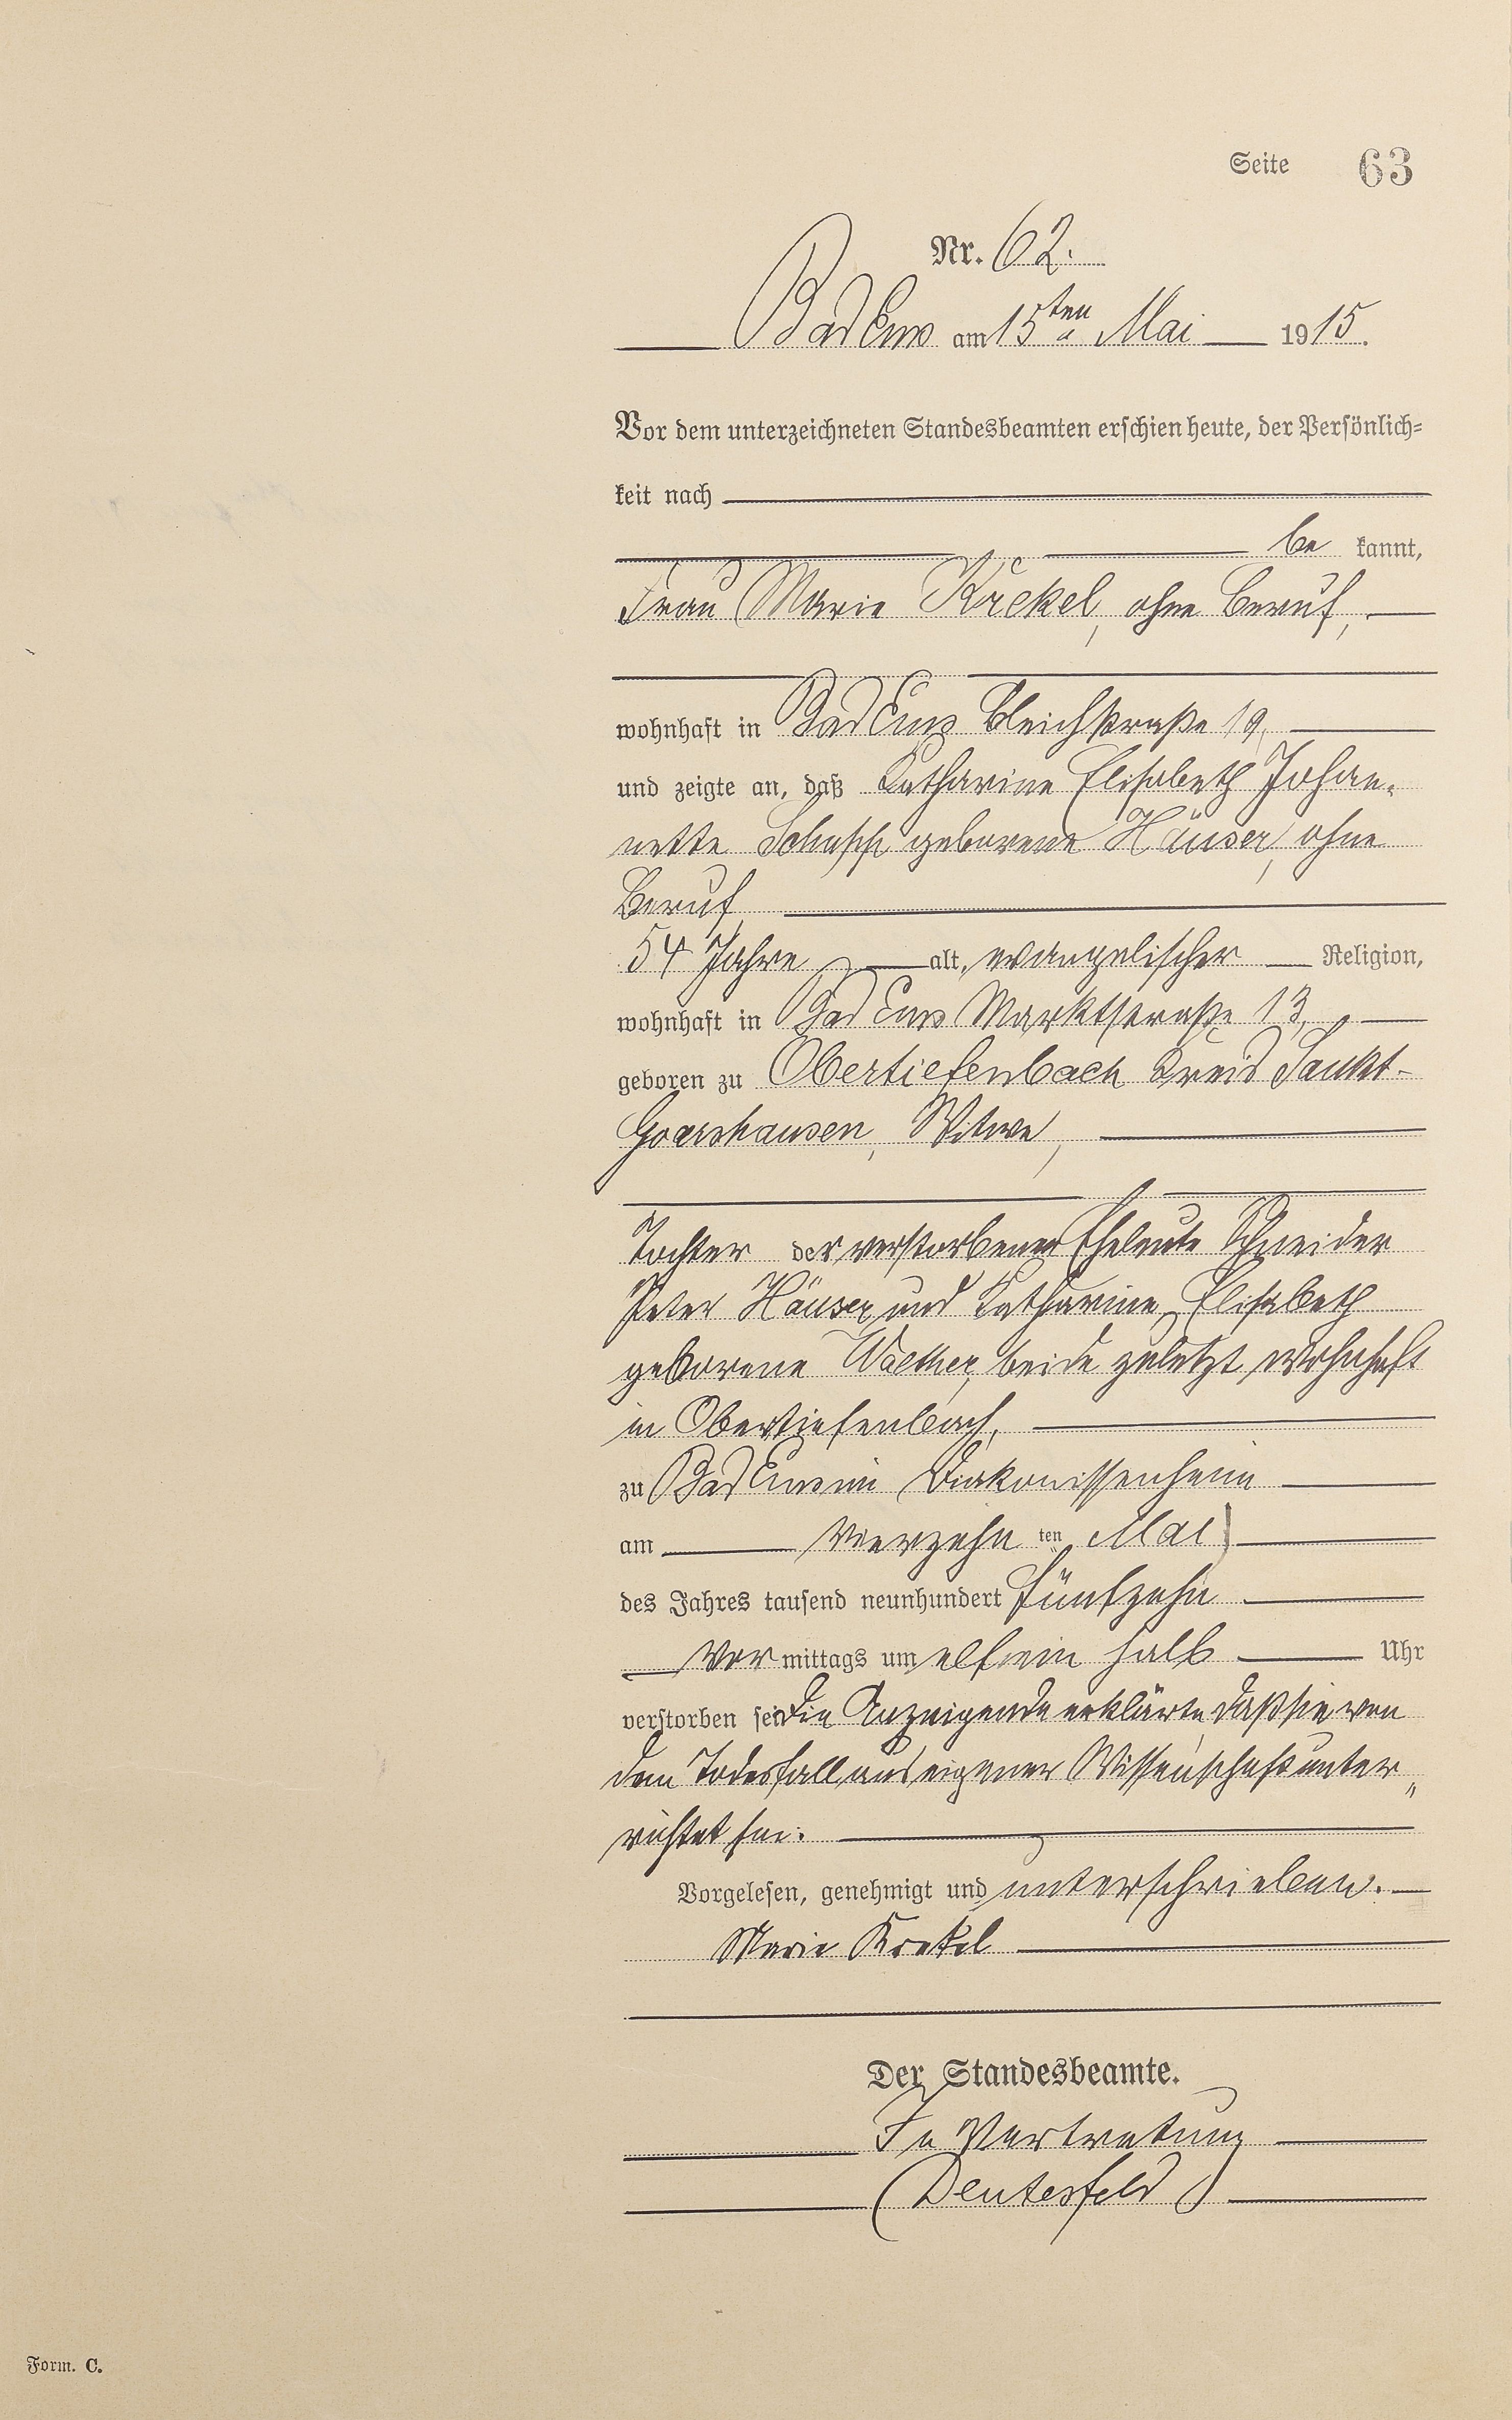 Seite 63
Nr. 62.
Bad Ems am 15ten Mai 1915.
Vor dem unterzeichneten Standesbeamten erschien heute, der Persönlich=
keit nach
be kannt,
Frau Marie Krekel, ohne Beruf,
wohnhaft in Bad Ems Bleichstraße 19,
und zeigte an, daß Katharine Elisabeth Johan-
nette geborene Häuser, ohne
Beruf,
54 Jahre alt, evangelischer Religion,
wohnhaft in Bad Ems Marktstraße 13,
geboren zu Obertiefenbach Kreis Sankt-
Goarshausen, Witwe,
Tochter der verstorbenen Eheleute Schneider
Peter Häuser und Katharine Elisabeth
geborene Walther, beide zuletzt wohnhaft
in Obertiefenbach,
zu Bad Ems im Diakonissenheim
am vierzehn ten Mai
des Jahres tausend neunhundert fünfzehn
Vor mittags um elf ein halb Uhr
verstorben sei. Die Anzeigende erklärte daß sie von
dem Todesfall aus eigener Wissenschaft unter„
richtet sei.
Vorgelesen, genehmigt und unterschrieben.
Marie Krekel
Der Standesbeamte.
In Vertretung
(Deutesfeld)
Form. C.